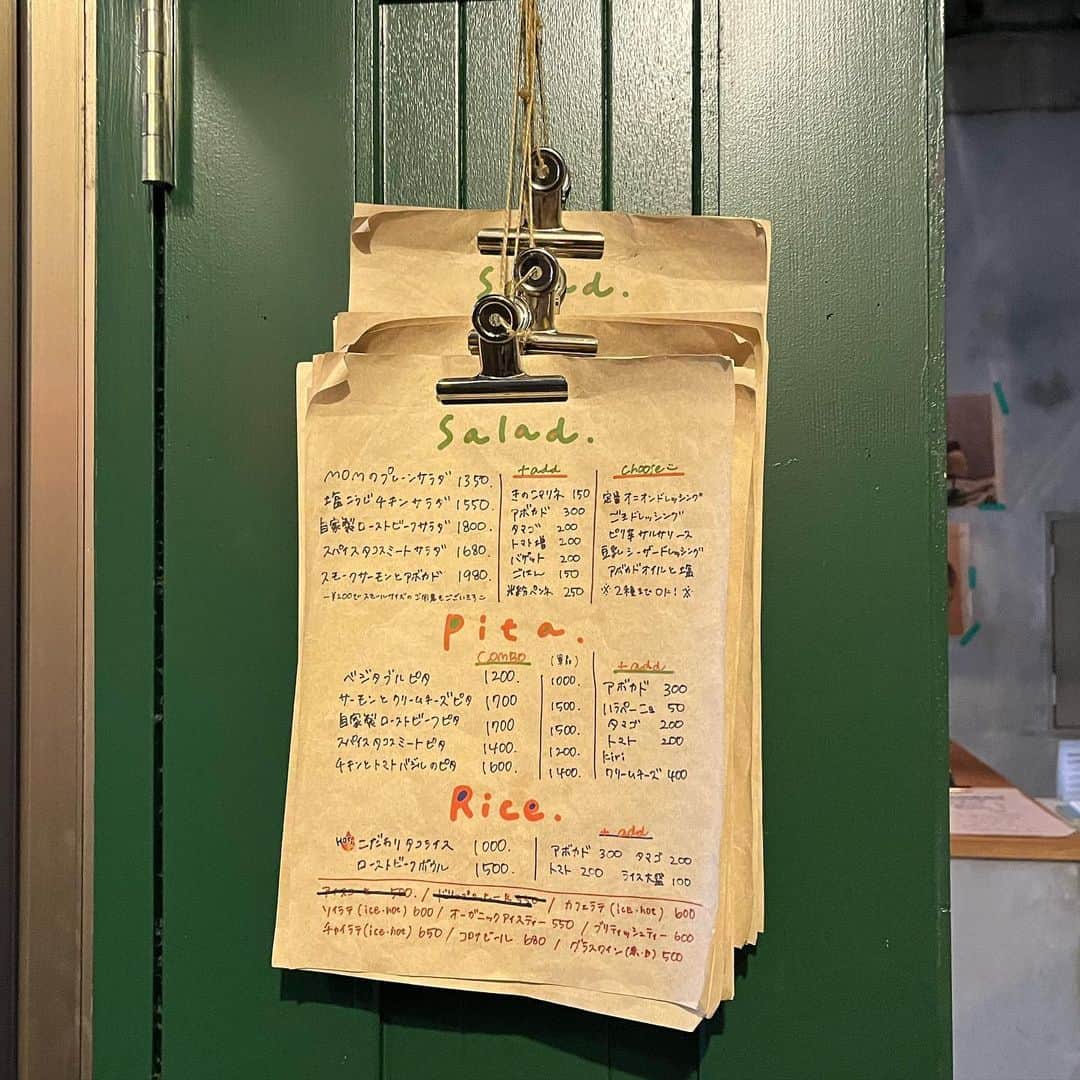 Salad.
Salad.
MOMのプレーンサラダ 1350.
塩こうじチキンサラダ 1550.
自家製ローストビーフサラダ 1800.
スパイスタコスミートサラダ 1680.
スモークサーモンとアボカド 1980.
ー¥200でスモールサイズのご用意もございますー
+add
きのこマリネ 150
アボカド 300
タマゴ 200
トマト増 200
バゲット 200
ごはん 150
米粉ペンネ 250
choose
定番オニオンドレッシング
ごまドレッシング
ピリ辛サルサソース
豆乳シーザードレッシング
アボカドオイルと塩
※2種までOK!※
Pita.
COMBO (単品)
ベジタブルピタ 1200. 1000.
サーモンとクリームチーズピタ 1700 1500.
自家製ローストビーフピタ 1700 1500.
スパイスタコスミートピタ 1400. 1200.
チキンとトマトバジルのピタ 1600. 1400.
+ add
アボカド 300
ハラペーニョ 50
タマゴ 200
トマト 200
kiri
クリームチーズ 400
Rice.
HOT こだわりタコライス 1000.
ローストビーフボウル 1500.
+ add
アボカド 300 タマゴ 200
トマト 200 ライス大盛 100
/ カフェラテ(ice・hot) 600
ソイラテ(ice・hot) 600 / オーガニックアイスティー 550 / ブリティッシュティー 600
チャイラテ(ice・hot) 650 / コロナビール 680 / グラスワイン(赤・白) 500